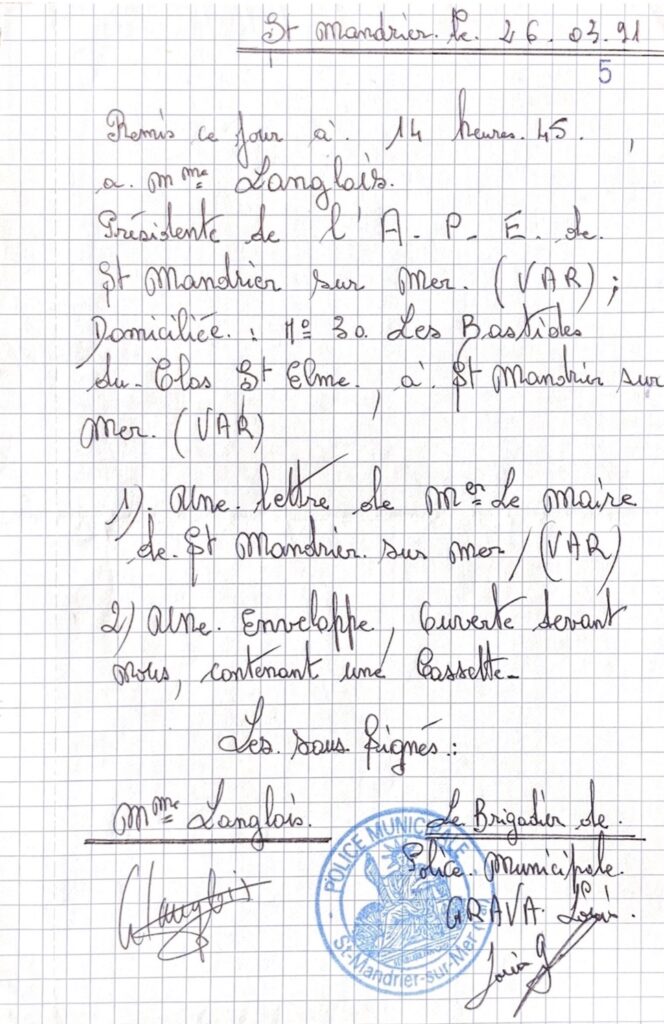 St Mandrier. le. 26.03.91
5
Remis ce jour à. 14 heures.45. ,
a. Mme Langlois.
Présidente de l'A.P.E. de.
St Mandrier sur Mer. (VAR) ;
Domiciliée. : No 30. Les Bastides
du. Clos St Elme. , à. St Mandrier sur
Mer. (VAR)
1). Une. lettre de Mer Le Maire
de. St Mandrier. sur Mer / (VAR)
2) Une. Enveloppe, Ouverte devant
Nous, contenant une Cassette-
Les. sous. signés :
Mme Langlois. Le Brigadier de.
Police. Municipale.
GRAVA.
Langlois
POLICE MUNICIPALE
St-Mandrier-sur-Mer (Var)